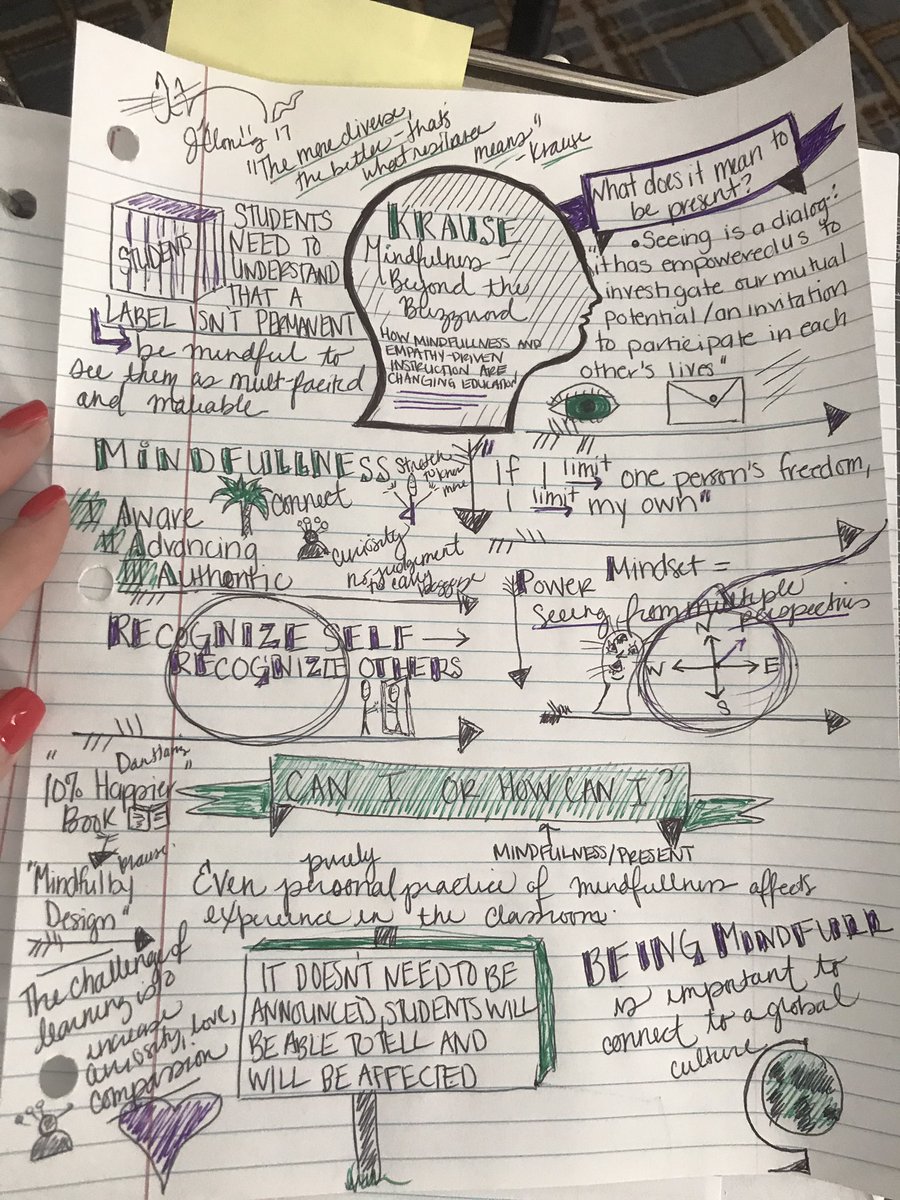 '17
"The more diverse,
the better - that's
what resilience
means"
- Krause
What does it mean to
be present?
STUDENTS
STUDENTS
NEED TO
UNDERSTAND
THAT A
LABEL ISN'T PERMANENT
be mindful to
see them as mult-faceted
and maluable
KRAUSE
Mindfulness
Beyond the
Buzzword
HOW MINDFULLNESS AND
EMPATHY-DRIVEN
INSTRUCTION ARE
CHANGING EDUCATION
• Seeing is a dialog:
"it has empowered us to
investigate our mutual
potential/an invitation
to participate in each
other's lives"
MINDFULLNESS
I Aware
II Advancing
III Authentic
Connect
Stretch
to know
more
Curiosity
no judgement
to carry
"If I limit one person's freedom,
I limit my own"
Power Mindset =
Seeing from multiple
perspectives
N
W E
S
RECOGNIZE SELF →
RECOGNIZE OTHERS
"10% Happier"
Book
Krause:
"Mindful by
Design"
CAN I OR HOW CAN I?
MINDFULNESS/PRESENT
purely
Even personal practice of mindfullness affects
experience in the classroom.
The challenge of
learning is to
increase
curiosity, love,
compassion
IT DOESN'T NEED TO BE
ANNOUNCED, STUDENTS WILL
BE ABLE TO TELL AND
WILL BE AFFECTED
BEING MINDFULL
is important to
connect to a global
culture